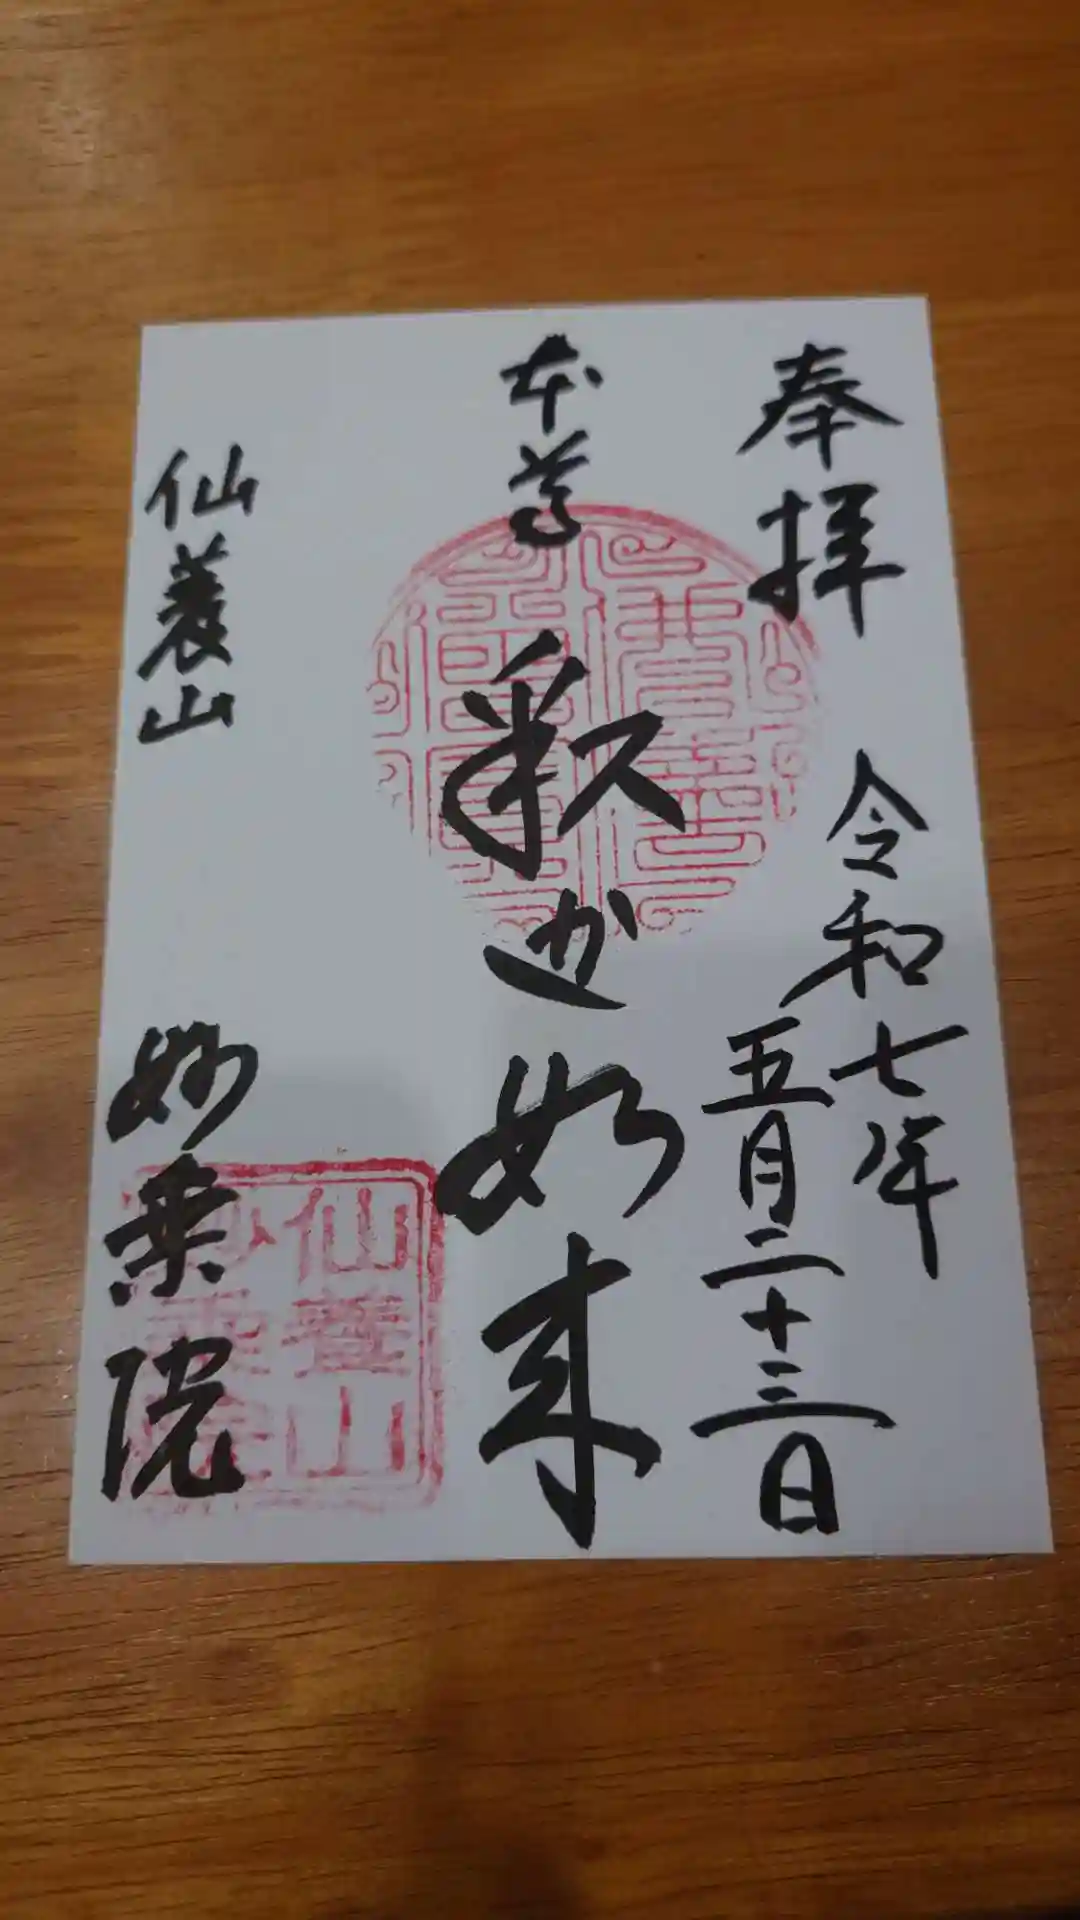 奉拝
令和七年
五月二十三日
本尊
釈迦如来
仙養山
妙乗院
仙養山
妙乗院